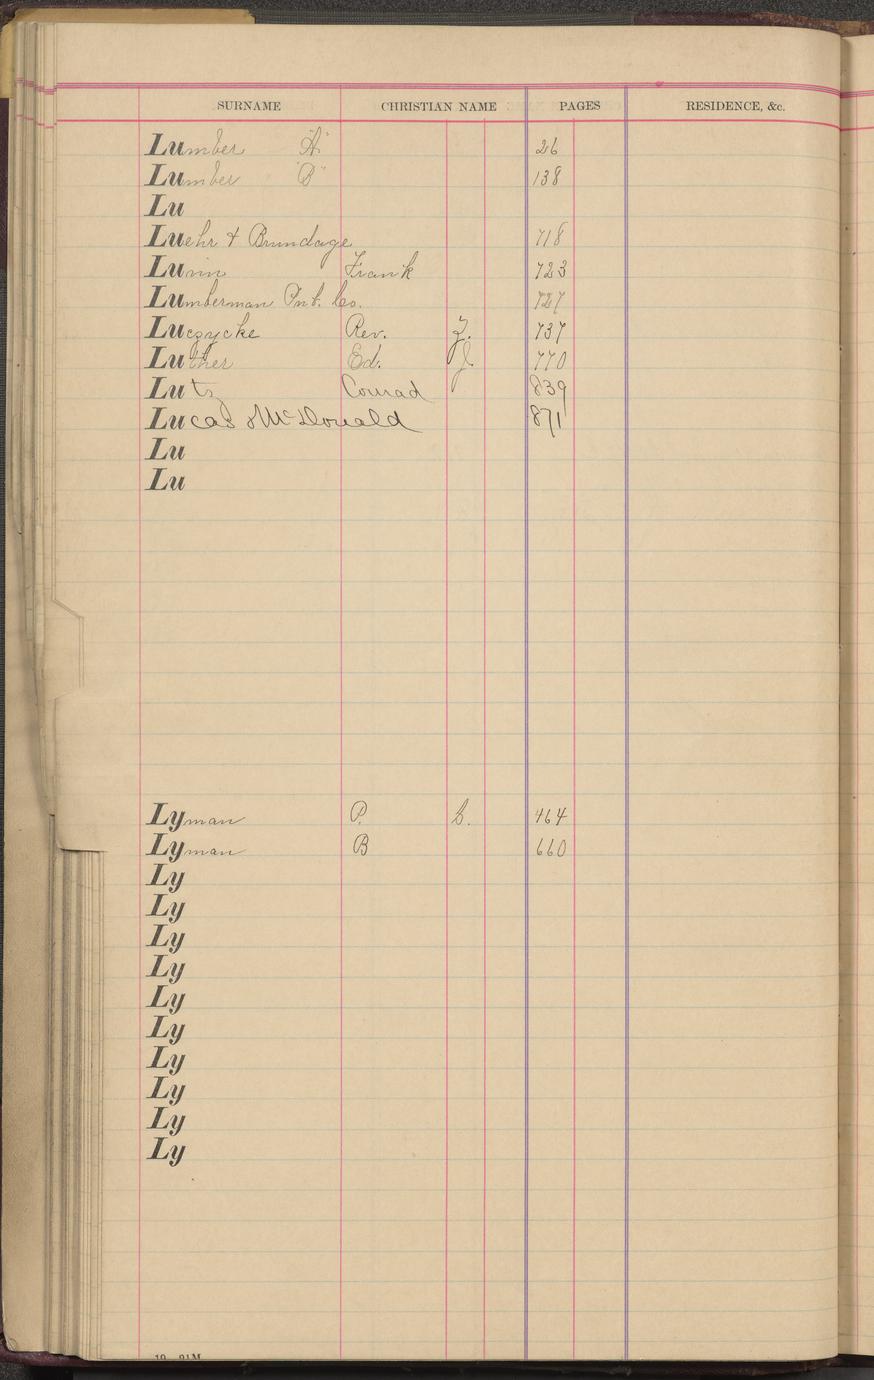 SURNAME CHRISTIAN NAME PAGES RESIDENCE, &c.
Lumber "A" 26
Lumber "B" 138
Lu
Luehr & Brundage 718
Frank 723
Lumberman Pub. Co. 727
Luczycke Rev. Z. 737
Luther Ed. J 770
Lutz Conrad 839
Lucas & McDonald 871
Lu
Lu
Lyman P. C. 464
Lyman B 660
Ly
Ly
Ly
Ly
Ly
Ly
Ly
Ly
Ly
Ly